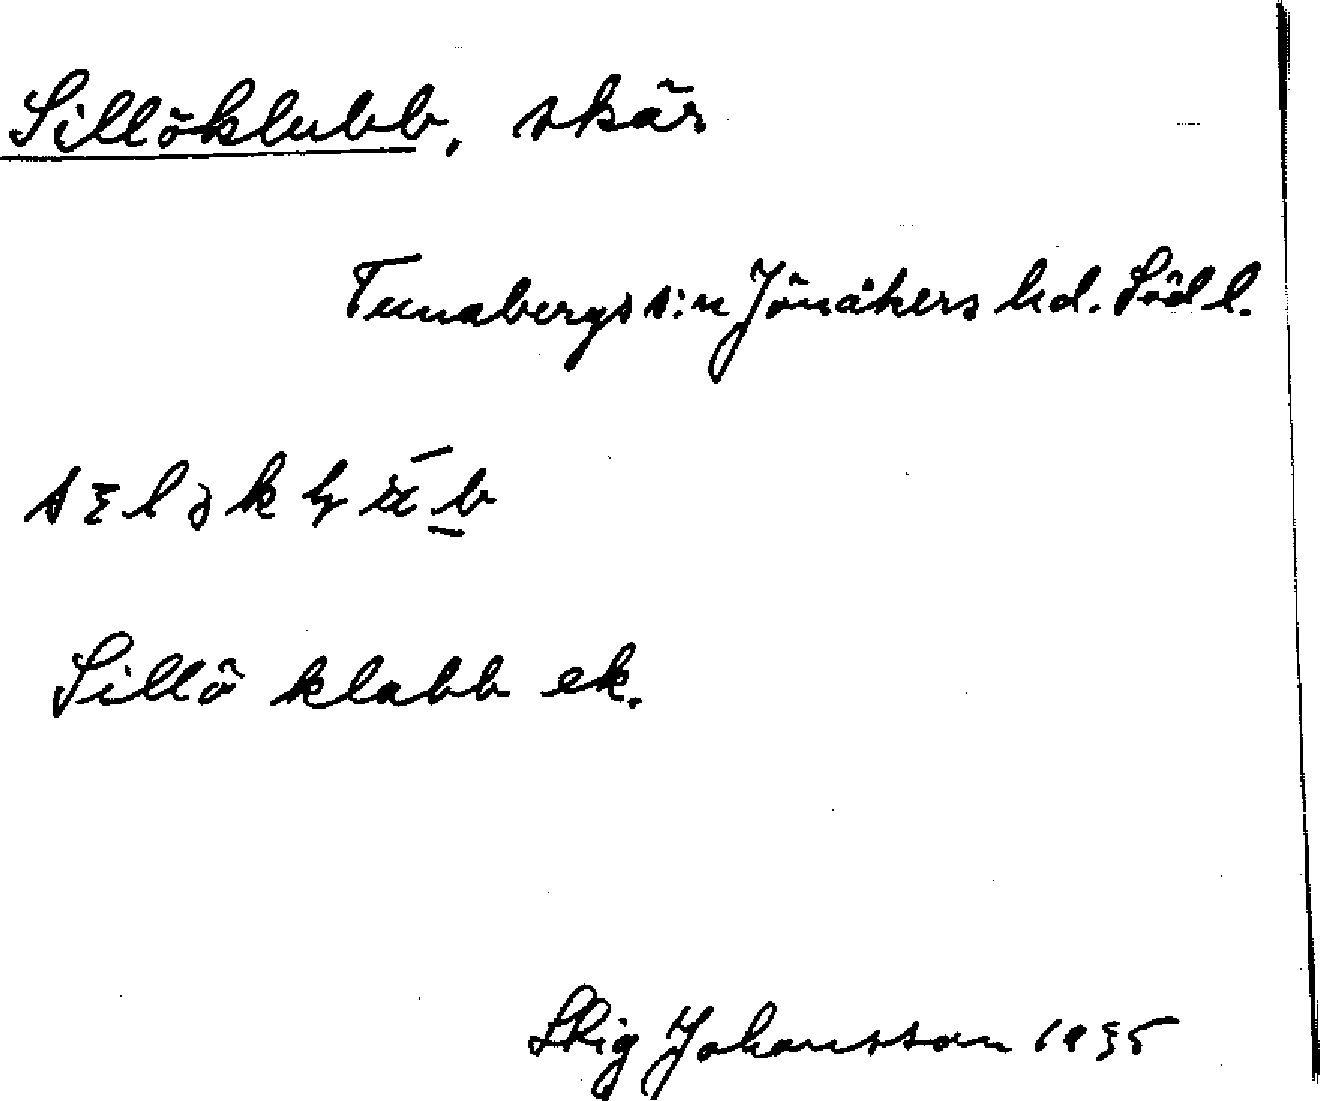 Sillöklubb, skär
Tunabergs s:n Jönåkers hd. Södl.
Sillö klabb ek.
Stig Johansson 1935